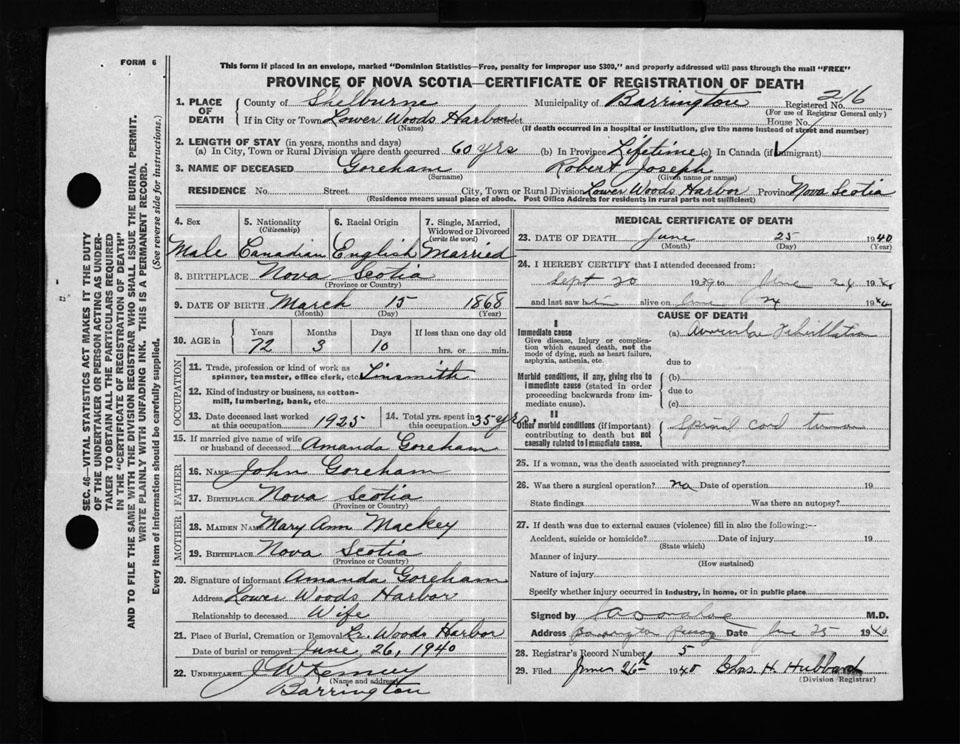 FORM 6
This form if placed in an envelope, marked "Dominion Statistics—Free, penalty for improper use $300," and properly addressed will pass through the mail "FREE"
PROVINCE OF NOVA SCOTIA—CERTIFICATE OF REGISTRATION OF DEATH
SEC. 46—VITAL STATISTICS ACT MAKES IT THE DUTY
OF THE UNDERTAKER OR PERSON ACTING AS UNDER-
TAKER TO OBTAIN ALL THE PARTICULARS REQUIRED
IN THE "CERTIFICATE OF REGISTRATION OF DEATH"
AND TO FILE THE SAME WITH THE DIVISION REGISTRAR WHO SHALL ISSUE THE BURIAL PERMIT.
WRITE PLAINLY WITH UNFADING INK. THIS IS A PERMANENT RECORD.
Every item of information should be carefully supplied. (See reverse side for instructions.)
1. PLACE OF DEATH County of Shelburne Municipality of Barrington Registered No. 216
(For use of Registrar General only)
If in City or Town Lower Woods Harbor House No.
(Name) (If death occurred in a hospital or institution, give the name instead of street and number)
2. LENGTH OF STAY (in years, months and days)
(a) In City, Town or Rural Division where death occurred 60 yrs (b) In Province Lifetime (c) In Canada (if immigrant)
3. NAME OF DECEASED Goreham Robert Joseph
(Surname) (Given name or names)
RESIDENCE No. Street City, Town or Rural Division Lower Woods Harbor Province Nova Scotia
(Residence means usual place of abode. Post Office Address for residents in rural parts not sufficient)
4. Sex 5. Nationality (Citizenship) 6. Racial Origin 7. Single, Married, Widowed or Divorced (write the word)
Male Canadian English Married
8. BIRTHPLACE Nova Scotia
(Province or Country)
9. DATE OF BIRTH March 15 1868
(Month) (Day) (Year)
10. AGE in Years Months Days If less than one day old
72 3 10 hrs. or min.
OCCUPATION
11. Trade, profession or kind of work as
spinner, teamster, office clerk, etc. Tinsmith
12. Kind of industry or business, as cotton-
mill, lumbering, bank, etc.
13. Date deceased last worked
at this occupation 1925 14. Total yrs. spent in 35 yrs
15. If married give name of wife
or husband of deceased Amanda Goreham
FATHER
16. Name John Goreham
17. Birthplace Nova Scotia
(Province or Country)
MOTHER
18. Maiden Name Mary Ann Mackey
19. Birthplace Nova Scotia
(Province or Country)
20. Signature of informant Amanda Goreham
Address Lower Woods Harbor
Relationship to deceased Wife
21. Place of Burial, Cremation or Removal Lr. Woods Harbor
Date of burial or removal June 26, 1940
22. UNDERTAKER J W Kenney
(Name and address)
Barrington
MEDICAL CERTIFICATE OF DEATH
23. DATE OF DEATH June 25 1940
(Month) (Day)
24. I HEREBY CERTIFY that I attended deceased from:
Sept 20 1939 to June 24 1940
and last saw him alive on June 24 1940
CAUSE OF DEATH
I
Immediate cause
Give disease, injury or complica-
tion which caused death, not the
mode of dying, such as heart failure,
asphyxia, asthenia, etc.
(a) Auricular Fibrillation
due to
Morbid conditions, if any, giving rise to
immediate cause (stated in order
proceeding backwards from im-
mediate cause).
(b)
due to
(c)
II
Other morbid conditions (if important)
contributing to death but not
causally related to immediate cause.
Spinal cord tumor
25. If a woman, was the death associated with pregnancy?
26. Was there a surgical operation? no Date of operation 19
State findings Was there an autopsy?
27. If death was due to external causes (violence) fill in also the following:—
Accident, suicide or homicide? Date of injury 19
(State which)
Manner of injury
(How sustained)
Nature of injury
Specify whether injury occurred in Industry, in home, or in public place
Signed by M.D.
Address Barrington Passage Date June 25 1940
28. Registrar's Record Number 5
29. Filed June 26th 1940 Chas. H. Hubbard
(Division Registrar)